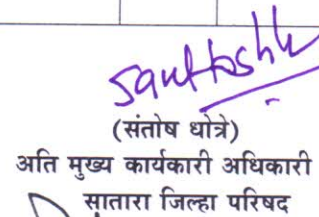 (संतोष धोत्रे)
अति मुख्य कार्यकारी अधिकारी
सातारा जिल्हा परिषद